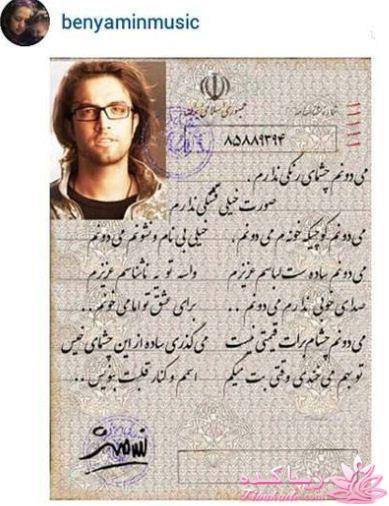 benyaminmusic
جمهوری اسلامی ایران
۸۵۸۸۹۳۹۴
می دونم چشای رنگی ندارم .
صورت خیلی قشنگی ندارم
می دونم کوچیکه خونه م می دونم . خیلی بی نام و نشونم می دونم
می دونم ساده ست لباسم عزیزم واسه تو یه ناشناسم عزیزم
صدای خوبی ندارم می دونم .. برای عشق تو اما می خونم ..
می دونم چشام برات قیمتی نیست می گذری ساده از این چشمای خیس
تو بهم می خندی وقتی بت میگم اسمم و کنار قلبت بنویس ..
زیباکده